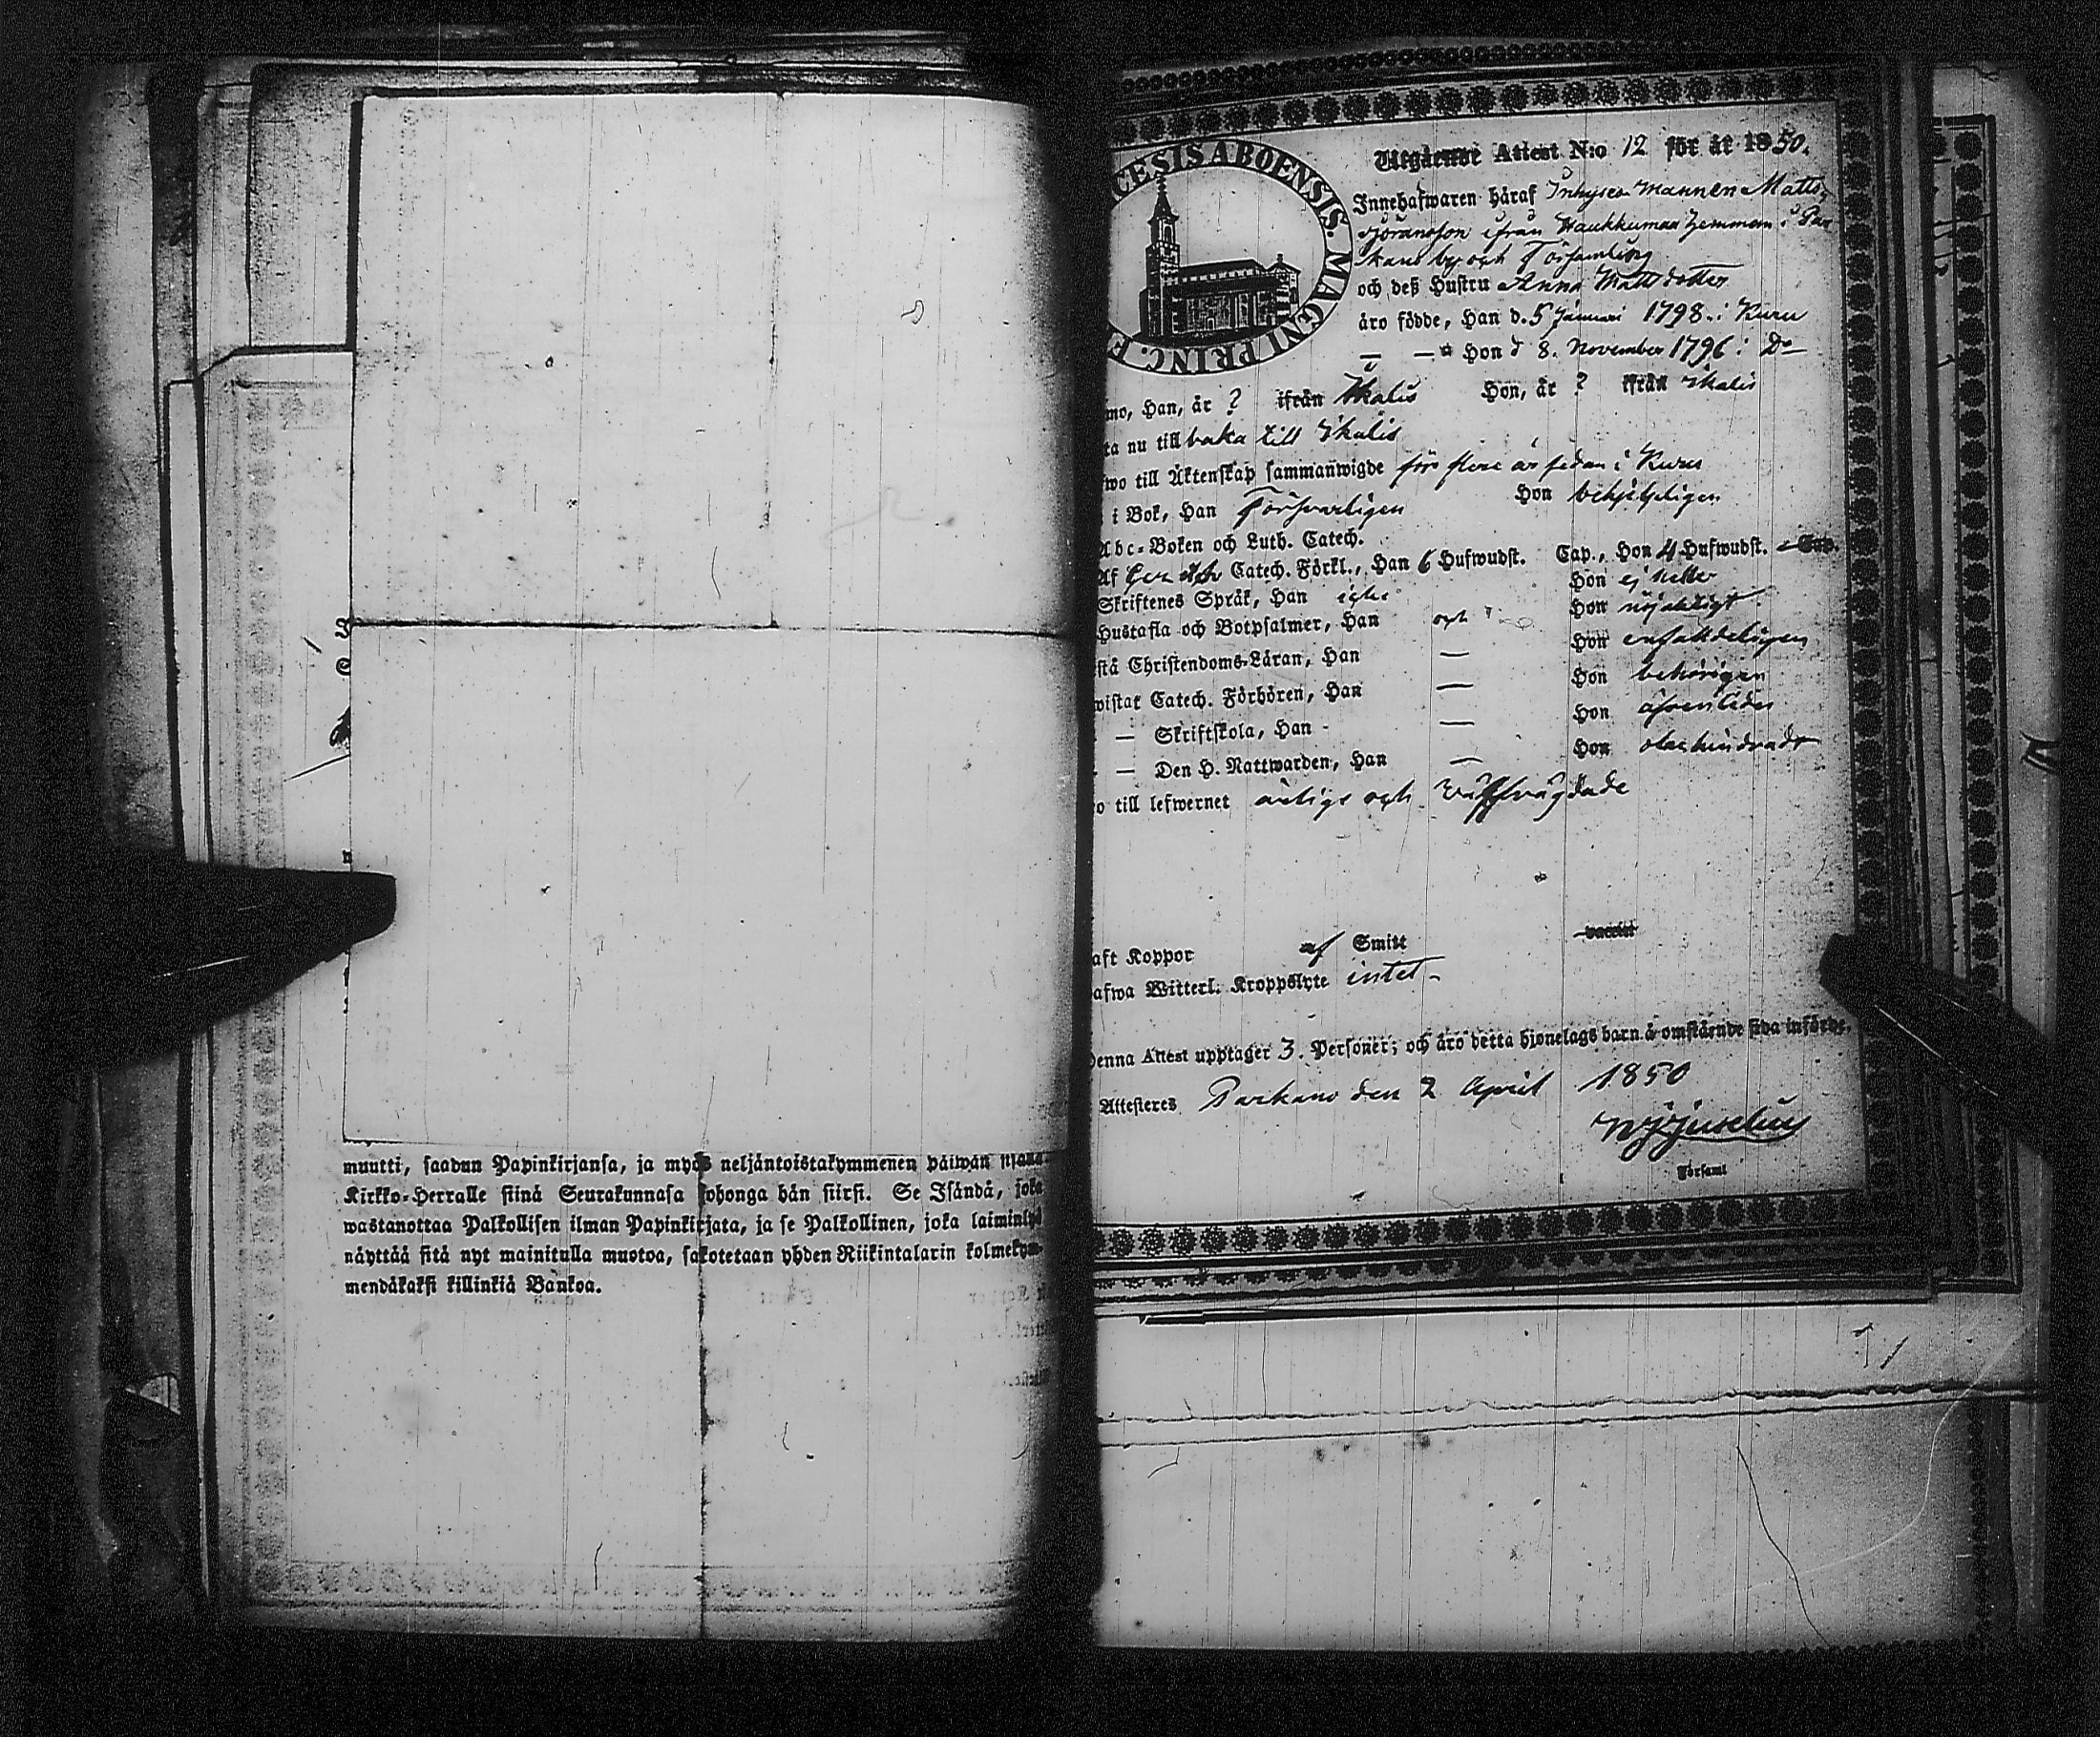 muutti, saadun Papinkirjansa, ja myös neljäntoistakymmenen päiwän sisään
Kirkko-Herralle siinä Seurakunnasa johonga hän siirsi. Se Isändä, joka
wastanottaa Palkollisen ilman Papinkirjata, ja se Palkollinen, joka laiminlyö
näyttää sitä nyt mainitulla muotoa, sakotetaan yhden Riikintalarin kolmekym-
mendäkaksi killinkiä Bankoa.
CESIS ABOENSIS. MAGNI PRINC. F
Utgående Attest N:o 12 för år 1850.
Innehafwaren häraf Inhyses mannen Matts
Jöransson ifrån Haukkumaa hemman i Par
kano by och Församling
och deß Hustru Anna Mattsdotter
äro födde, Han d. 5 Januari 1798 i Kuru
— — Hon d 8. November 1796 i Do
mo, Han, år ? ifrån Ikalis Hon, år ? ifrån Ikalis
ta nu till baka till Ikalis
wo till Äktenskap sammanwigde för flere år sedan i Kuru
i Bok, Han Försvarligen Hon behjelpligen
Abc-Boken och Luth. Catech.
Af Catech. Förkl., Han 6 Hufwudst. Cap., Hon 4 Hufwudst. Cap.
Skriftenes Språk, Han icke Hon ej heller
Hustafla och Botpsalmer, Han och Hon nöjaktigt
stå Christendoms-Läran, Han — Hon enfaldeligen
wistat Catech. Förhören, Han — Hon behörigen
— Skriftskola, Han — Hon äfvenledes
— Den H. Nattwarden, Han — Hon obehindrade
o till lefwernet ärlige och välfrägdade
aft Koppor af Smitt vaccin
afwa Witterl. Kroppslyte intet
Denna Attest upptager 3. Personer; och äro detta hjonelags barn å omstående sida införde.
Attesteres Parkano den 2 April 1850
Juselius
Förfaml